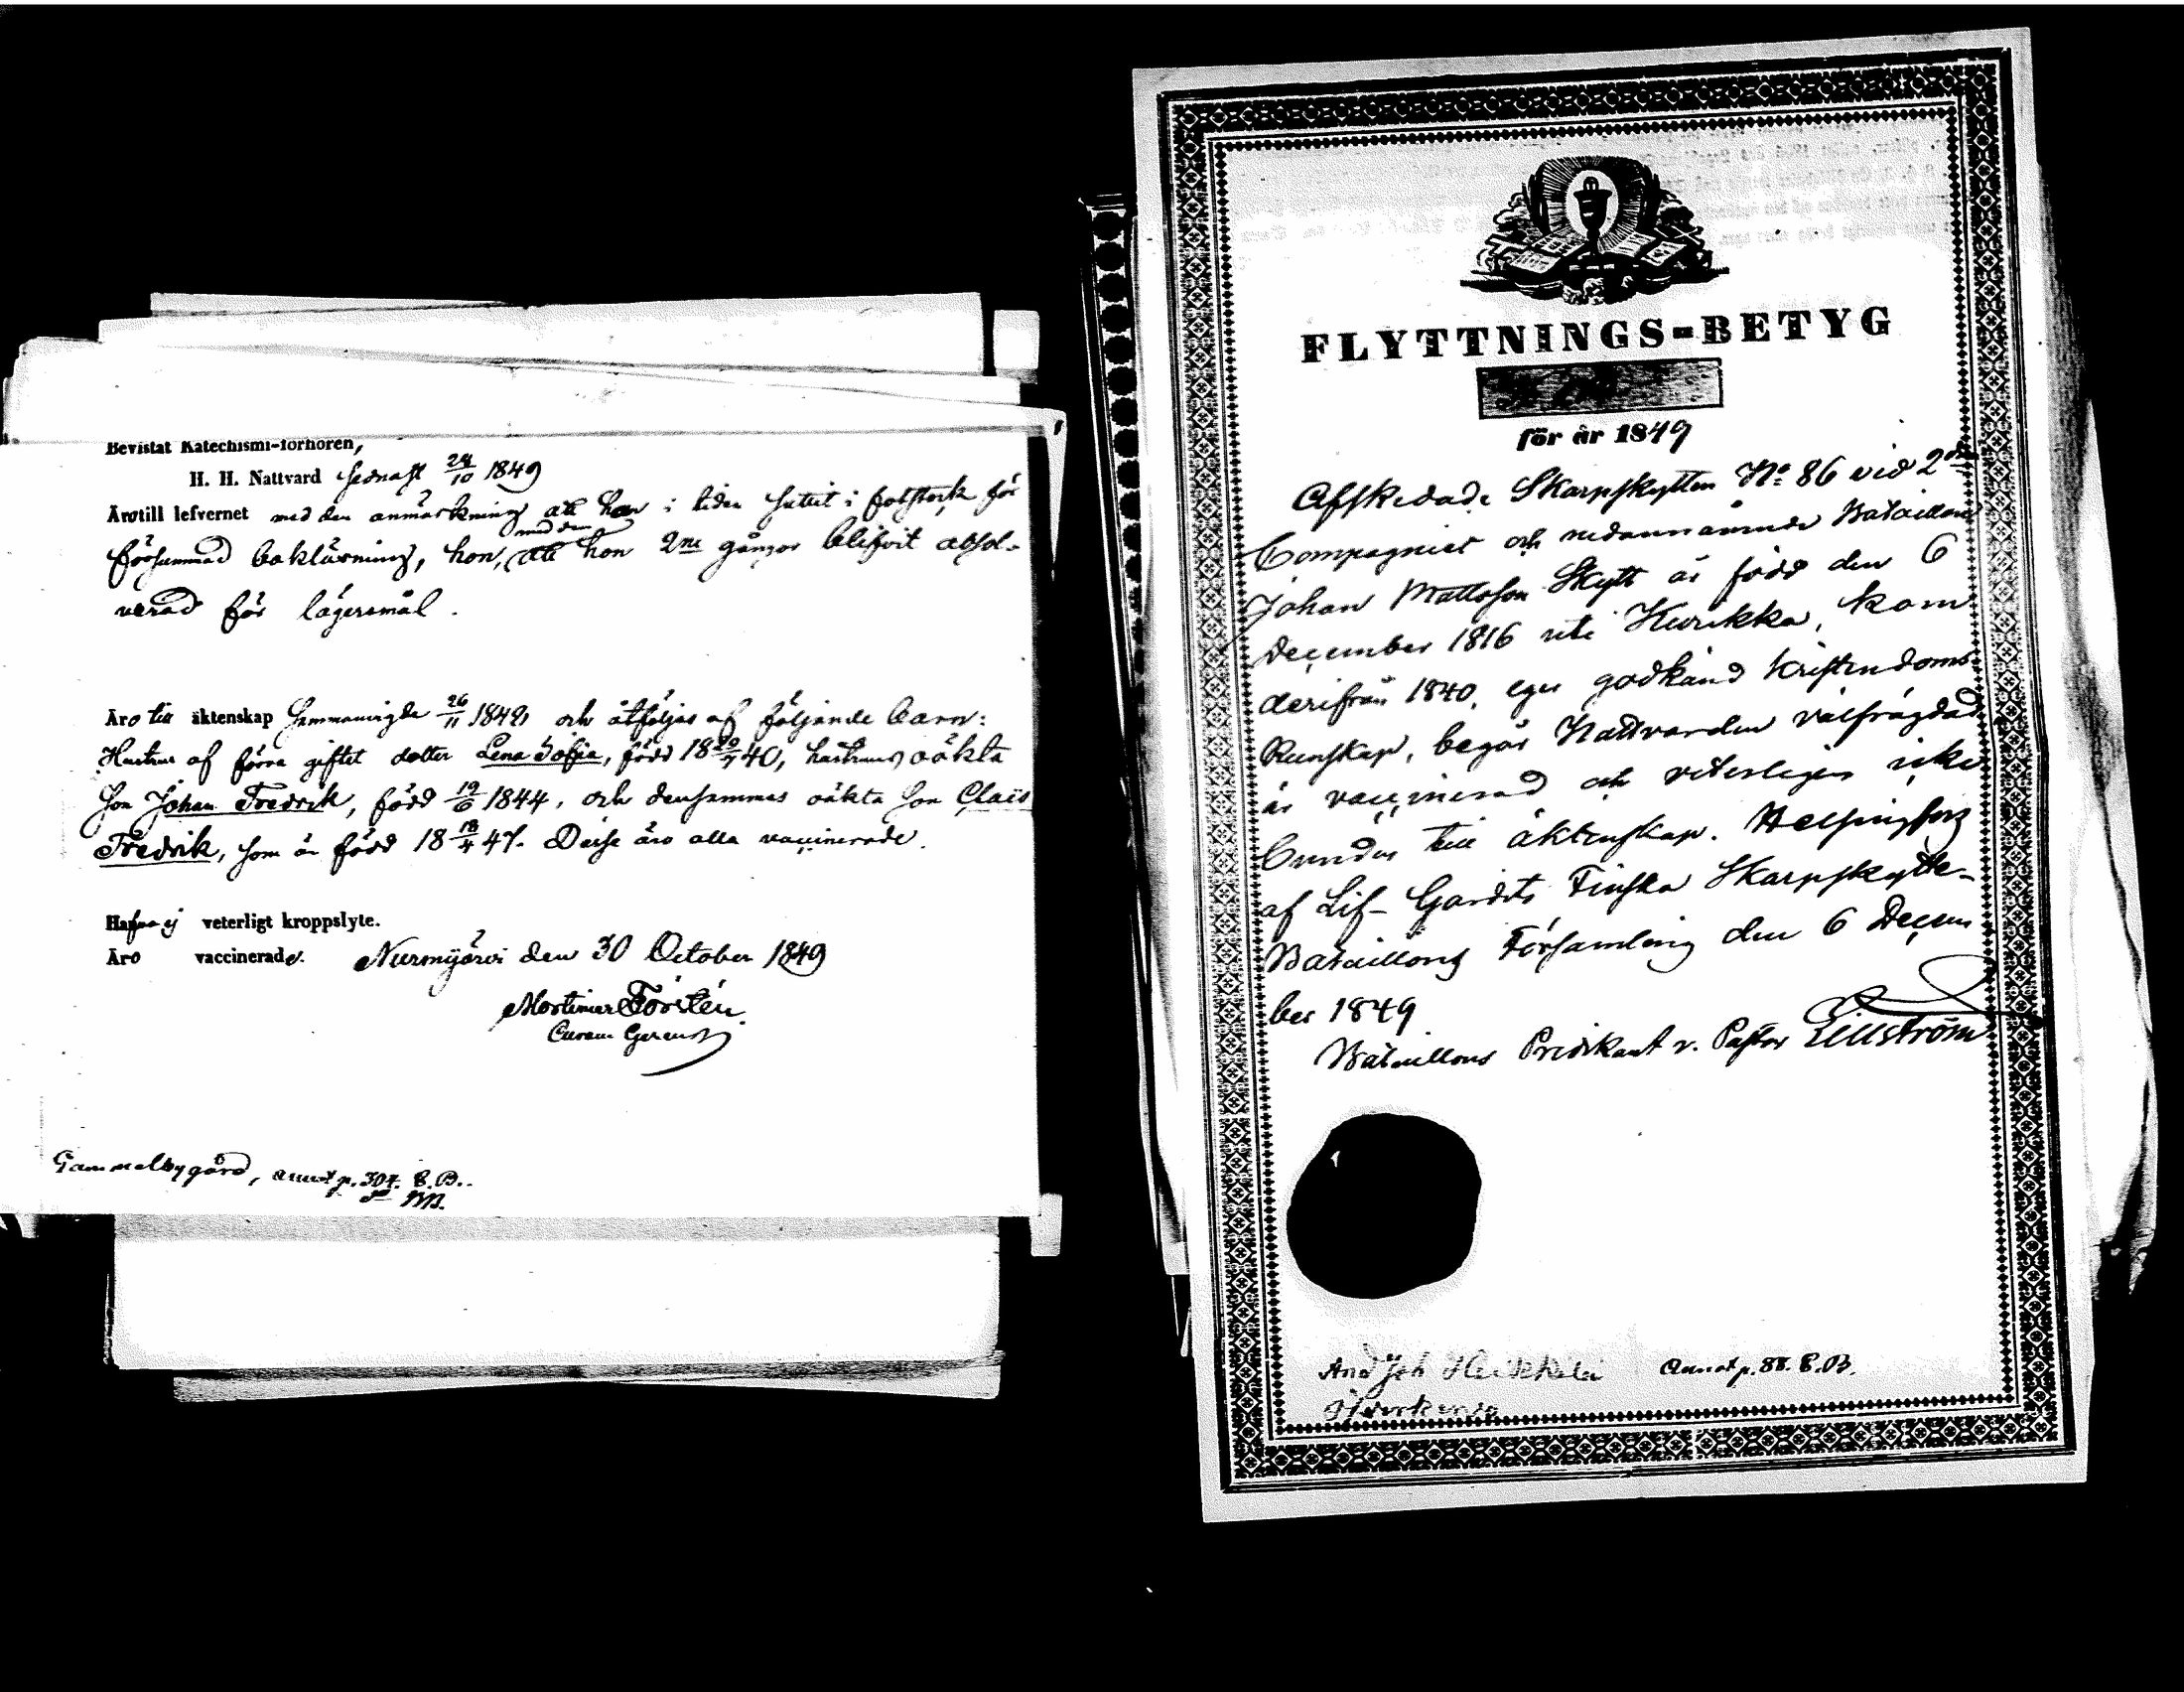 Bevistat Katechismi-förhören,
H. H. Nattvard sednast 28/10 1849
Äro till lefvernet med den anmärkning att han i tiden suttit i fotstock för
försummad baklärning, hon, med den att hon 2ne gånger blifvit absol-
verad för lägersmål.
Äro till äktenskap sammanvigde 26/11 1848 och åtföljas af följande barn:
Hustrus af förra giftet dotter Lena Sofia, född 18 /7 40, hustrus oäkta
son Johan Fredrik, född 19/6 1844, och densammas oäkta son Claës
Fredrik, som är född 18 18/4 47. Desse äro alla vaccinerade.
Hafva ej veterligt kroppslyte.
Äro vaccinerade. Nurmijärvi den 30 October 1849
Mortimer Forstén.
Curam Gerens
Gammelbygård, annot p. 304. C. B..
FLYTTNINGS=BETYG
för år 1849
Afskedade Skarpskytten No 86 vid 2dra
Compagniet och nedannämnde Bataillon
Johan Mattsson Skytt är född den 6
december 1816 uti Kurikka, kom
derifrån 1840, eger godkänd Kristendoms
Kunskap, begår Nattvarden välfrägdad
är vaccinerad och veterligen icke
bunden till äktenskap. Helsingfors
af Lif-Gardets Finska Skarpskytte-
Bataillons Församling den 6 Decem
ber 1849
Bataillons Predikant v. Pastor Lillström
And Joh
annot p. 88. C. B.